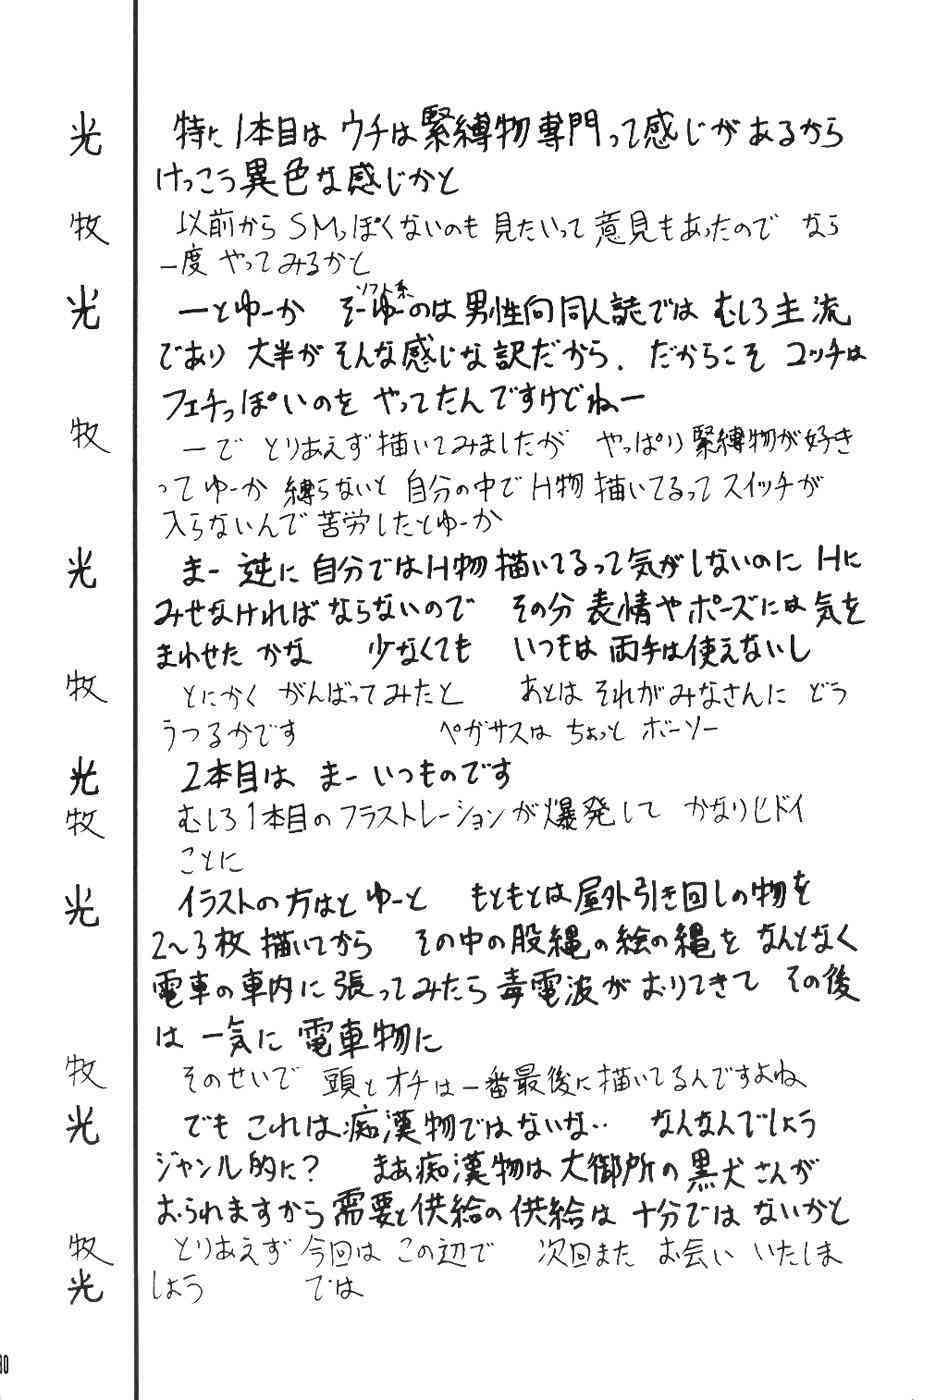 光 特に1本目は ウチは緊縛物専門って感じがあるから
けっこう異色な感じかと
牧 以前から SMっぽくないのも 見たいって 意見もあったので なら
一度 やってみるかと
ソフト系
光 ーとゆーか そーゆーのは 男性向同人誌では むしろ主流
であり 大半が そんな感じな訳だから. だからこそ コッチは
フェチっぽいのを やってたんですけどねー
牧 ーで とりあえず描いてみましたが やっぱり緊縛物が好き
ってゆーか 縛らないと 自分の中でH物描いてるってスイッチが
入らないんで苦労したとゆーか
光 まー 逆に自分ではH物描いてるって気がしないのに Hに
みせなければならないので その分 表情やポーズには気を
まわせた かな 少なくても いつもは両手は使えないし
牧 とにかく がんばってみたと あとは それがみなさんに どう
うつるかです ペガサスは ちょっと ボーソー
光 2本目は まー いつものです
牧 むしろ1本目のフラストレーションが爆発して かなりヒドイ
ことに
光 イラストの方はと ゆーと もともとは屋外引き回しの物を
2〜3枚 描いてから その中の股縄の絵の縄を なんとなく
電車の車内に張ってみたら毒電波がおりてきて その後
は 一気に 電車物に
牧 そのせいで 頭とオチは一番最後に描いてるんですよね
光 でも これは痴漢物ではないな‥ なんなんでしょう
ジャンル的に? まあ痴漢物は大御所の黒犬さんが
おられますから需要と供給の供給は 十分ではないかと
牧 とりあえず 今回は この辺で 次回また お会い いたしま
光 しょう では
80